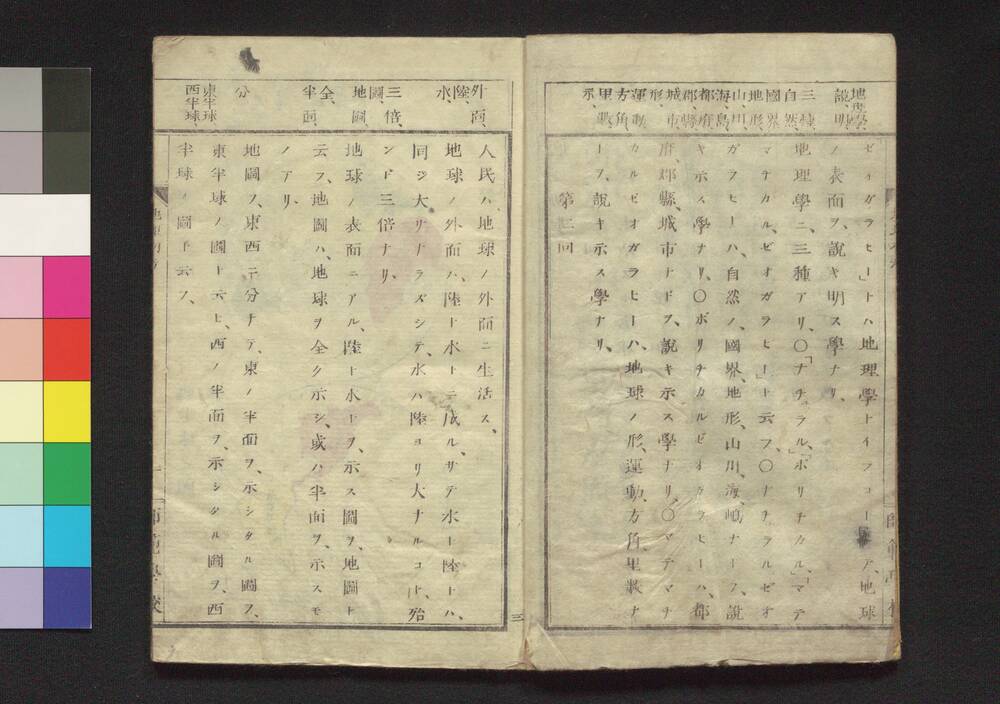 地理學、
説明、
三種、
自然、
國界
地形、
山川、
海島
都府
郡縣、
城市、
形
運動、
方角、
里數、
示、
ゼィガラヒー」トハ地理學トイフコーデ、地球
ノ表面ヲ、說キ明ス學ナリ、
地理學ニ、三種アリ、〇「ナチュラル、」「ポリチカル、」「マテ
マチカル、ゼオガラヒート云フ、〇ナチュラルゼオ
ガラヒーハ、自然ノ、國界、地形、山川、海嶋ナドヲ、說
キ示ス學ナリ、〇ポリチカルゼオガラヒーハ、都
府、郡縣、城市ナドヲ、說キ示ス學ナリ、〇マテマチ
カルゼオガラヒーハ、地球ノ形、運動、方角、里數ナ
ドヲ、說キ示ス學ナリ、
第二回
外面、
陸
水、
三倍、
圖
地圖、
全
半面、
分
東半球、
西半球、
人民ハ、地球ノ外面ニ生活ス、
地球ノ外面ハ、陸ト水トニ成ル、サテ水ト陸トハ、
同ジ大サナラズシテ、水ハ陸ヨリ大ナルコト、殆
ンド三倍ナリ、
地球ノ表面ニアル、陸ト水トヲ、示ス圖ヲ、地圖ト
云フ、地圖ハ、地球ヲ全ク示シ、或ハ半面ヲ、示スモ
ノアリ、
地圖ヲ、東西ニ分チテ、東ノ半面ヲ、示シタル圖ヲ、
東半球ノ圖ト云ヒ、西ノ半面ヲ、示シタル圖ヲ、西
半球ノ圖ト云フ、
三
師範學校